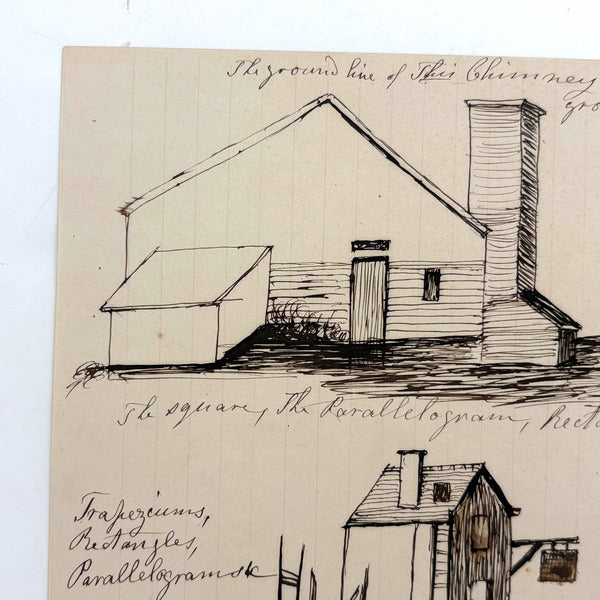 The ground line of This Chimney
gro
The square, The Parallelogram, Recta
Trapeziums,
Rectangles,
Parallelograms &